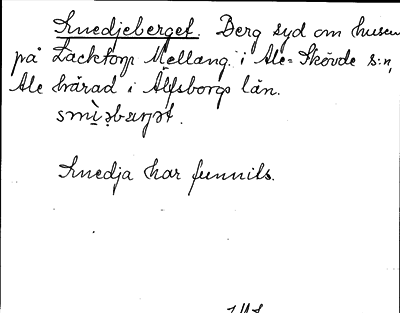 Smedjeberget. Berg syd om husen
på Backtorp Mellang. i Ale-Skövde s:n,
Ale härad i Älfsborgs län.
Smedja har funnits.